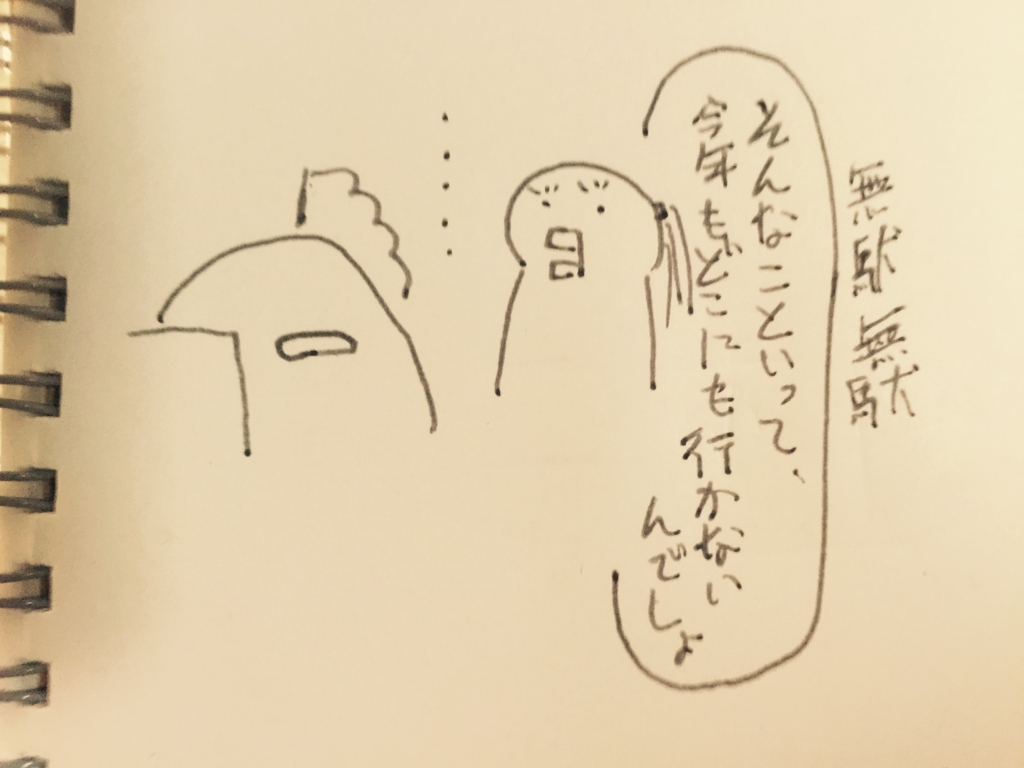 無駄無駄
そんなこといって、
今年もどこにも行かない
んでしょ
・・・・